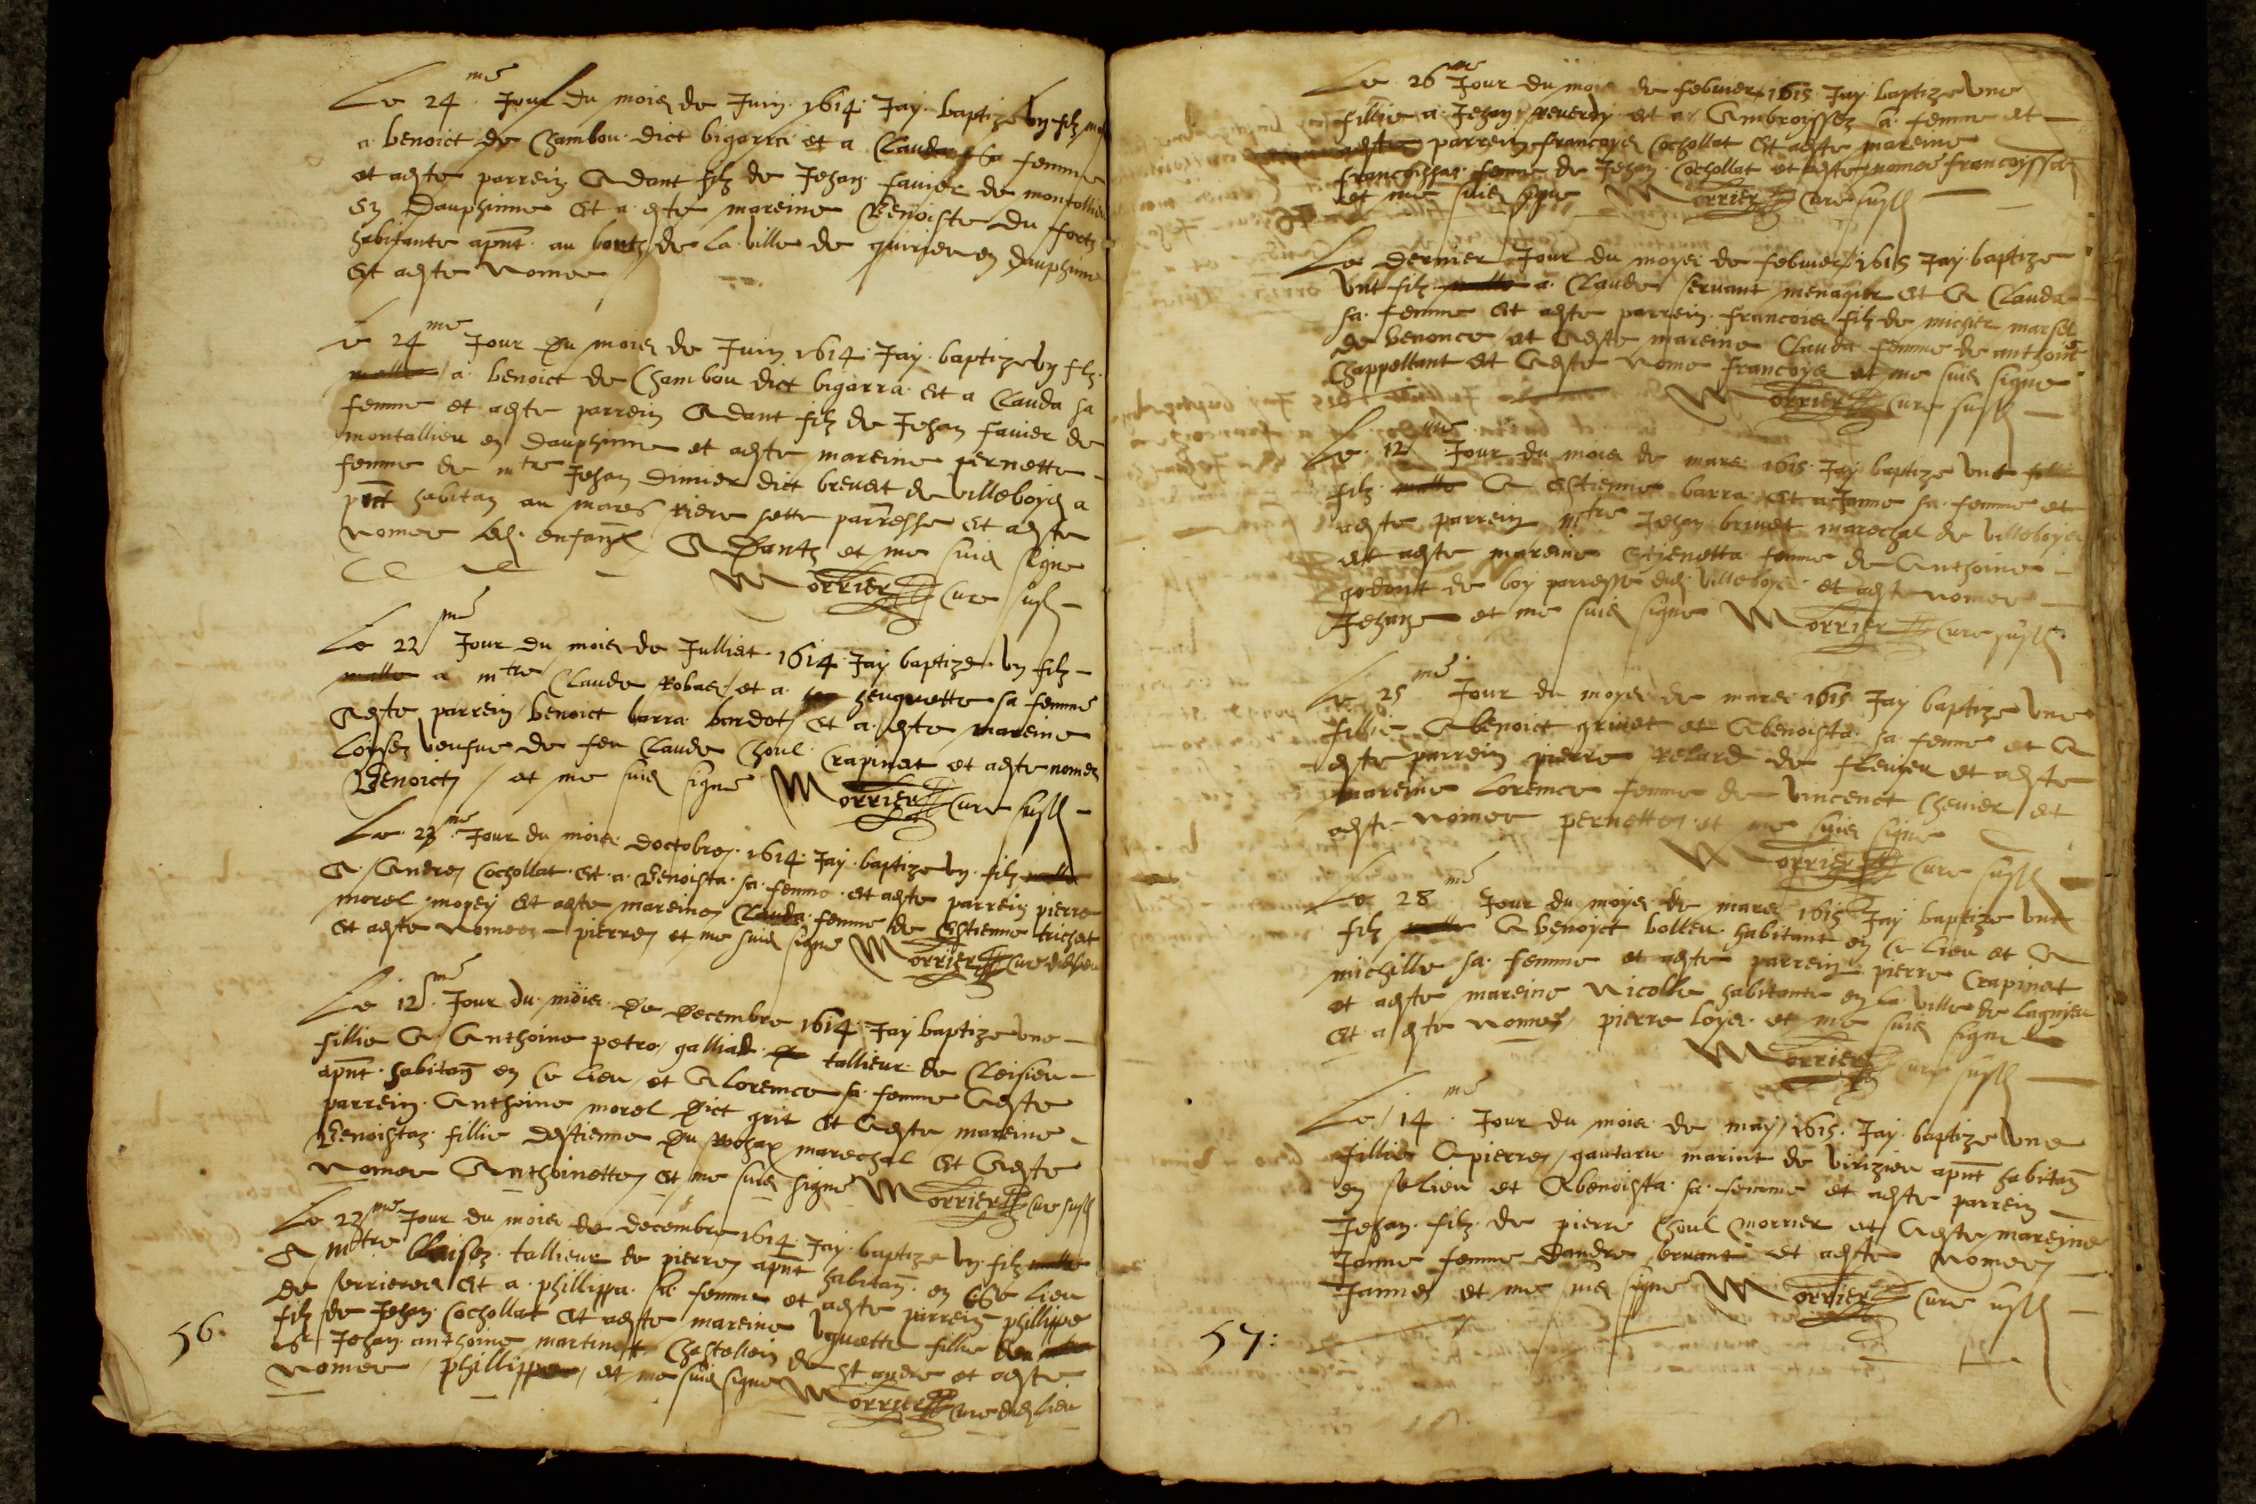 Le 24 me Jour du mois de Juin 1614 Jay baptize un filz
a benoict de Chambou dict bigarra et a Clauda sa femme
et aeste parrein Adant filz de Jehan favier de montallieu
en Dauphinne et a este mareine Benoiste du
habitante apnt au de la ville de quirieu en dauphinne
et aeste nomee
Le 24 me Jour du mois de Juin 1614 Jay baptize un filz
malle a benoict de Chambou dict bigarra et a Clauda sa
femme et aeste parrein Adant filz de Jehan favier de
montallieu en Dauphinne et aeste mareine pernette
femme de mtre Jehan dimier dict brevet de villeboys a
pnt habitan au mares riere sette parresse et aeste
nomee led. enfant Adantz et me suis signe
Morrier Cure susd
Le 22 me Jour du mois de Julliet 1614 Jay baptize un filz
malle a mtre Claude Robas et a heuguette sa femme
aeste parrein benoict barra bardot et a este mareine
Loyse veufve de feu Claude Choul Crapinat et aeste nomez
Benoict et me suis signe Morrier Cure susd
Le 23 me Jour du mois doctobre 1614 Jay baptize un filz malle
A Andre Cochollat et a Benoista sa femme et aeste parrein pierre
morel et aeste mareine Clauda femme de Estienne trichat
et aeste nomee pierre et me suis signe Morrier Cure dud lieu
Le 12 me Jour du mois de Decembre 1614 Jay baptize une
fillie A Anthoine petro galliad tallieur de Cleisieu
apnt habitan en ce lieu et A lorence sa femme Aeste
parrein Anthoine morel dict grit et Aeste mareine
Benoistaz fillie destienne du marechal et Aeste
nomee Anthoinette et me suis signe Morrier Cure susd
Le 22 me Jour du mois de decembre 1614 Jay baptize un filz malle
A mtre tallieur de pierre apnt habitan en ce lieu
de serrieres et a phillippa sa femme et aeste parrein phillippe
filz de Jehan Cochollat et aeste mareine uguette fillie de
Sr Jehan anthoine martinat Chastellein de st andre et aeste
nomee phillippe et me suis signe Morrier Cure dud lieu
56.
Le 26 me Jour du mois de febvier 1615 Jay baptize une
fillie a Jehan reverdy et a Ambroysse sa femme et
aeste parrein francoys Cochollat et aeste mareine
francoissas femme de Jehan Cochollat et aeste nomee francoyssa
et me suis signe Morrier Cure susd
Le dernier Jour du moys de febvier 1615 Jay baptize
unt filz malle a Claude servant menagier et A Clauda
sa femme et aeste parrein francois filz de michel
de benonce et Aeste mareine Clauda femme de anthoine
Chappellant et Aeste nome francoys et me suis signe
Morrier Cure susd
Le 12 me Jour du mois de mars 1615 Jay baptize unt
filz malle A Estienne barra et a Janne sa femme et
aeste parrein mtre Jehan brivet marechal de villeboys
et aeste mareine Etienetta femme de Anthoine
de boy parresse dud villeboys et aeste nomee
Jehan et me suis signe Morrier Cure susd
Le 25 me Jour du moys de mars 1615 Jay baptize une
fillie A benoict grivet et A benoista sa femme et A
este parrein pierre relard de et aeste
mareine lorence femme de vincent chevier et
aeste nomee pernette et me suis signe
Morrier Cure susd
Le 28 me Jour du moys de mars 1615 Jay baptize unt
filz malle A benoyct bolleu habitant en ce lieu et A
michille sa femme et aeste parrein pierre Crapinat
et aeste mareine nicolle habitante en la ville de lagnieu
et a este nomez pierre loys et me suis signe
Morrier Cure susd
Le 14 me Jour du mois de may 1615 Jay baptize une
fillie A pierre marint de virizieu apnt habitan
en se lieu et A benoista sa femme et aeste parrein
Jehan filz de pierre Choul morrier et Aeste mareine
Janne femme dandre servant et aeste nomee
Janne et me suis signe Morrier Cure susd
57: